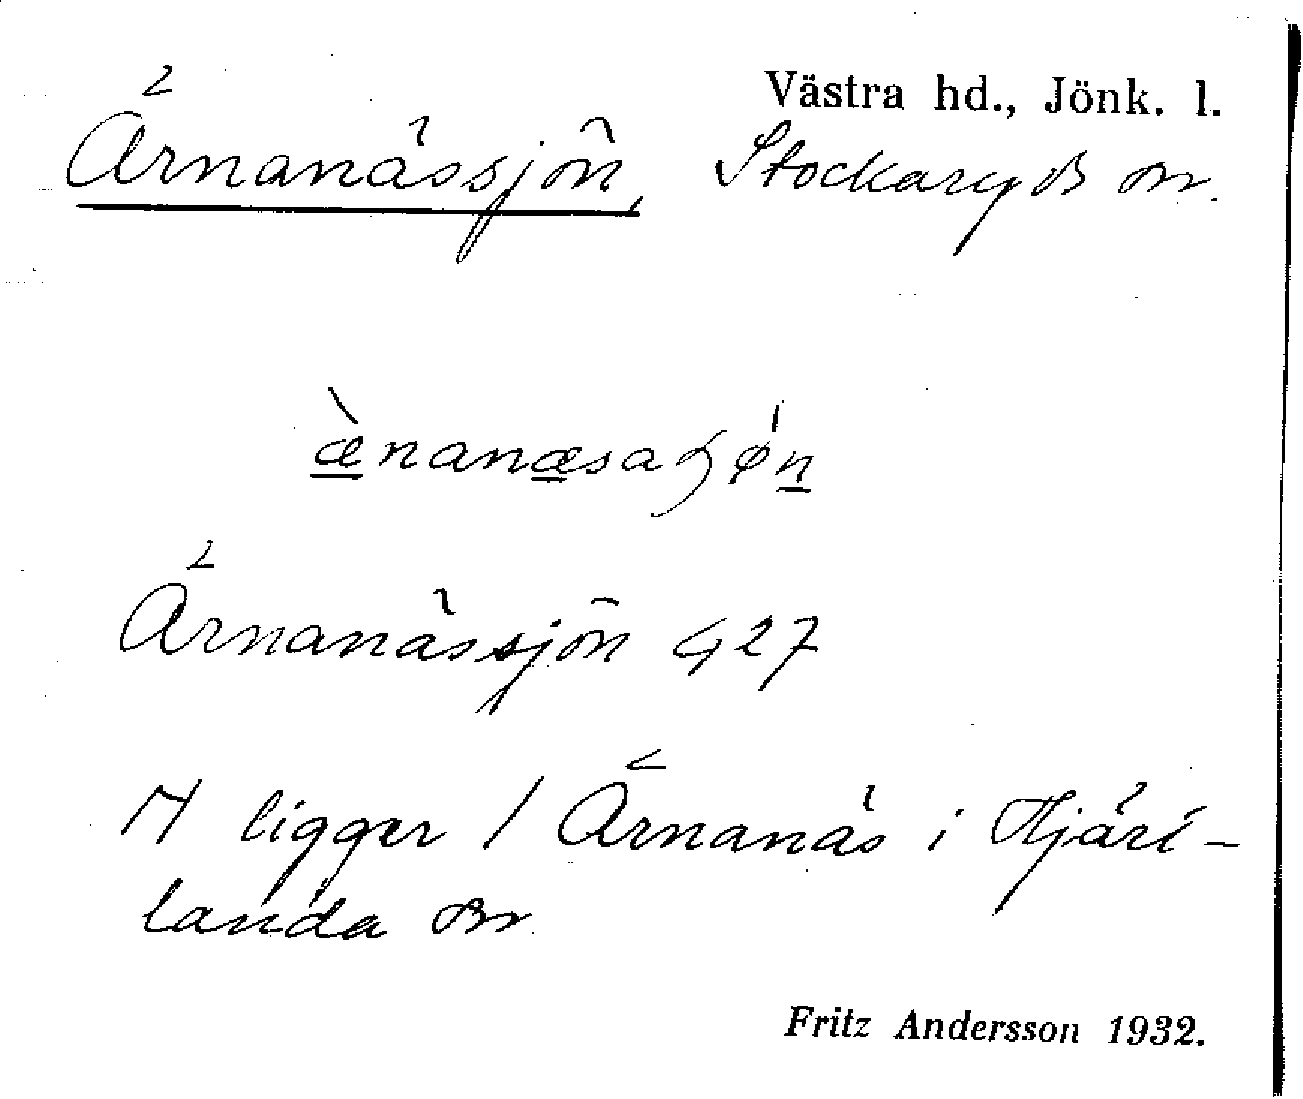 Västra hd., Jönk. l.
Ärnanässjön, Stockaryds sn.
ænanæsaʃøn
Ärnanässjön 427
ligger / Ärnanäs i Hjärt-
landa sn
Fritz Andersson 1932.